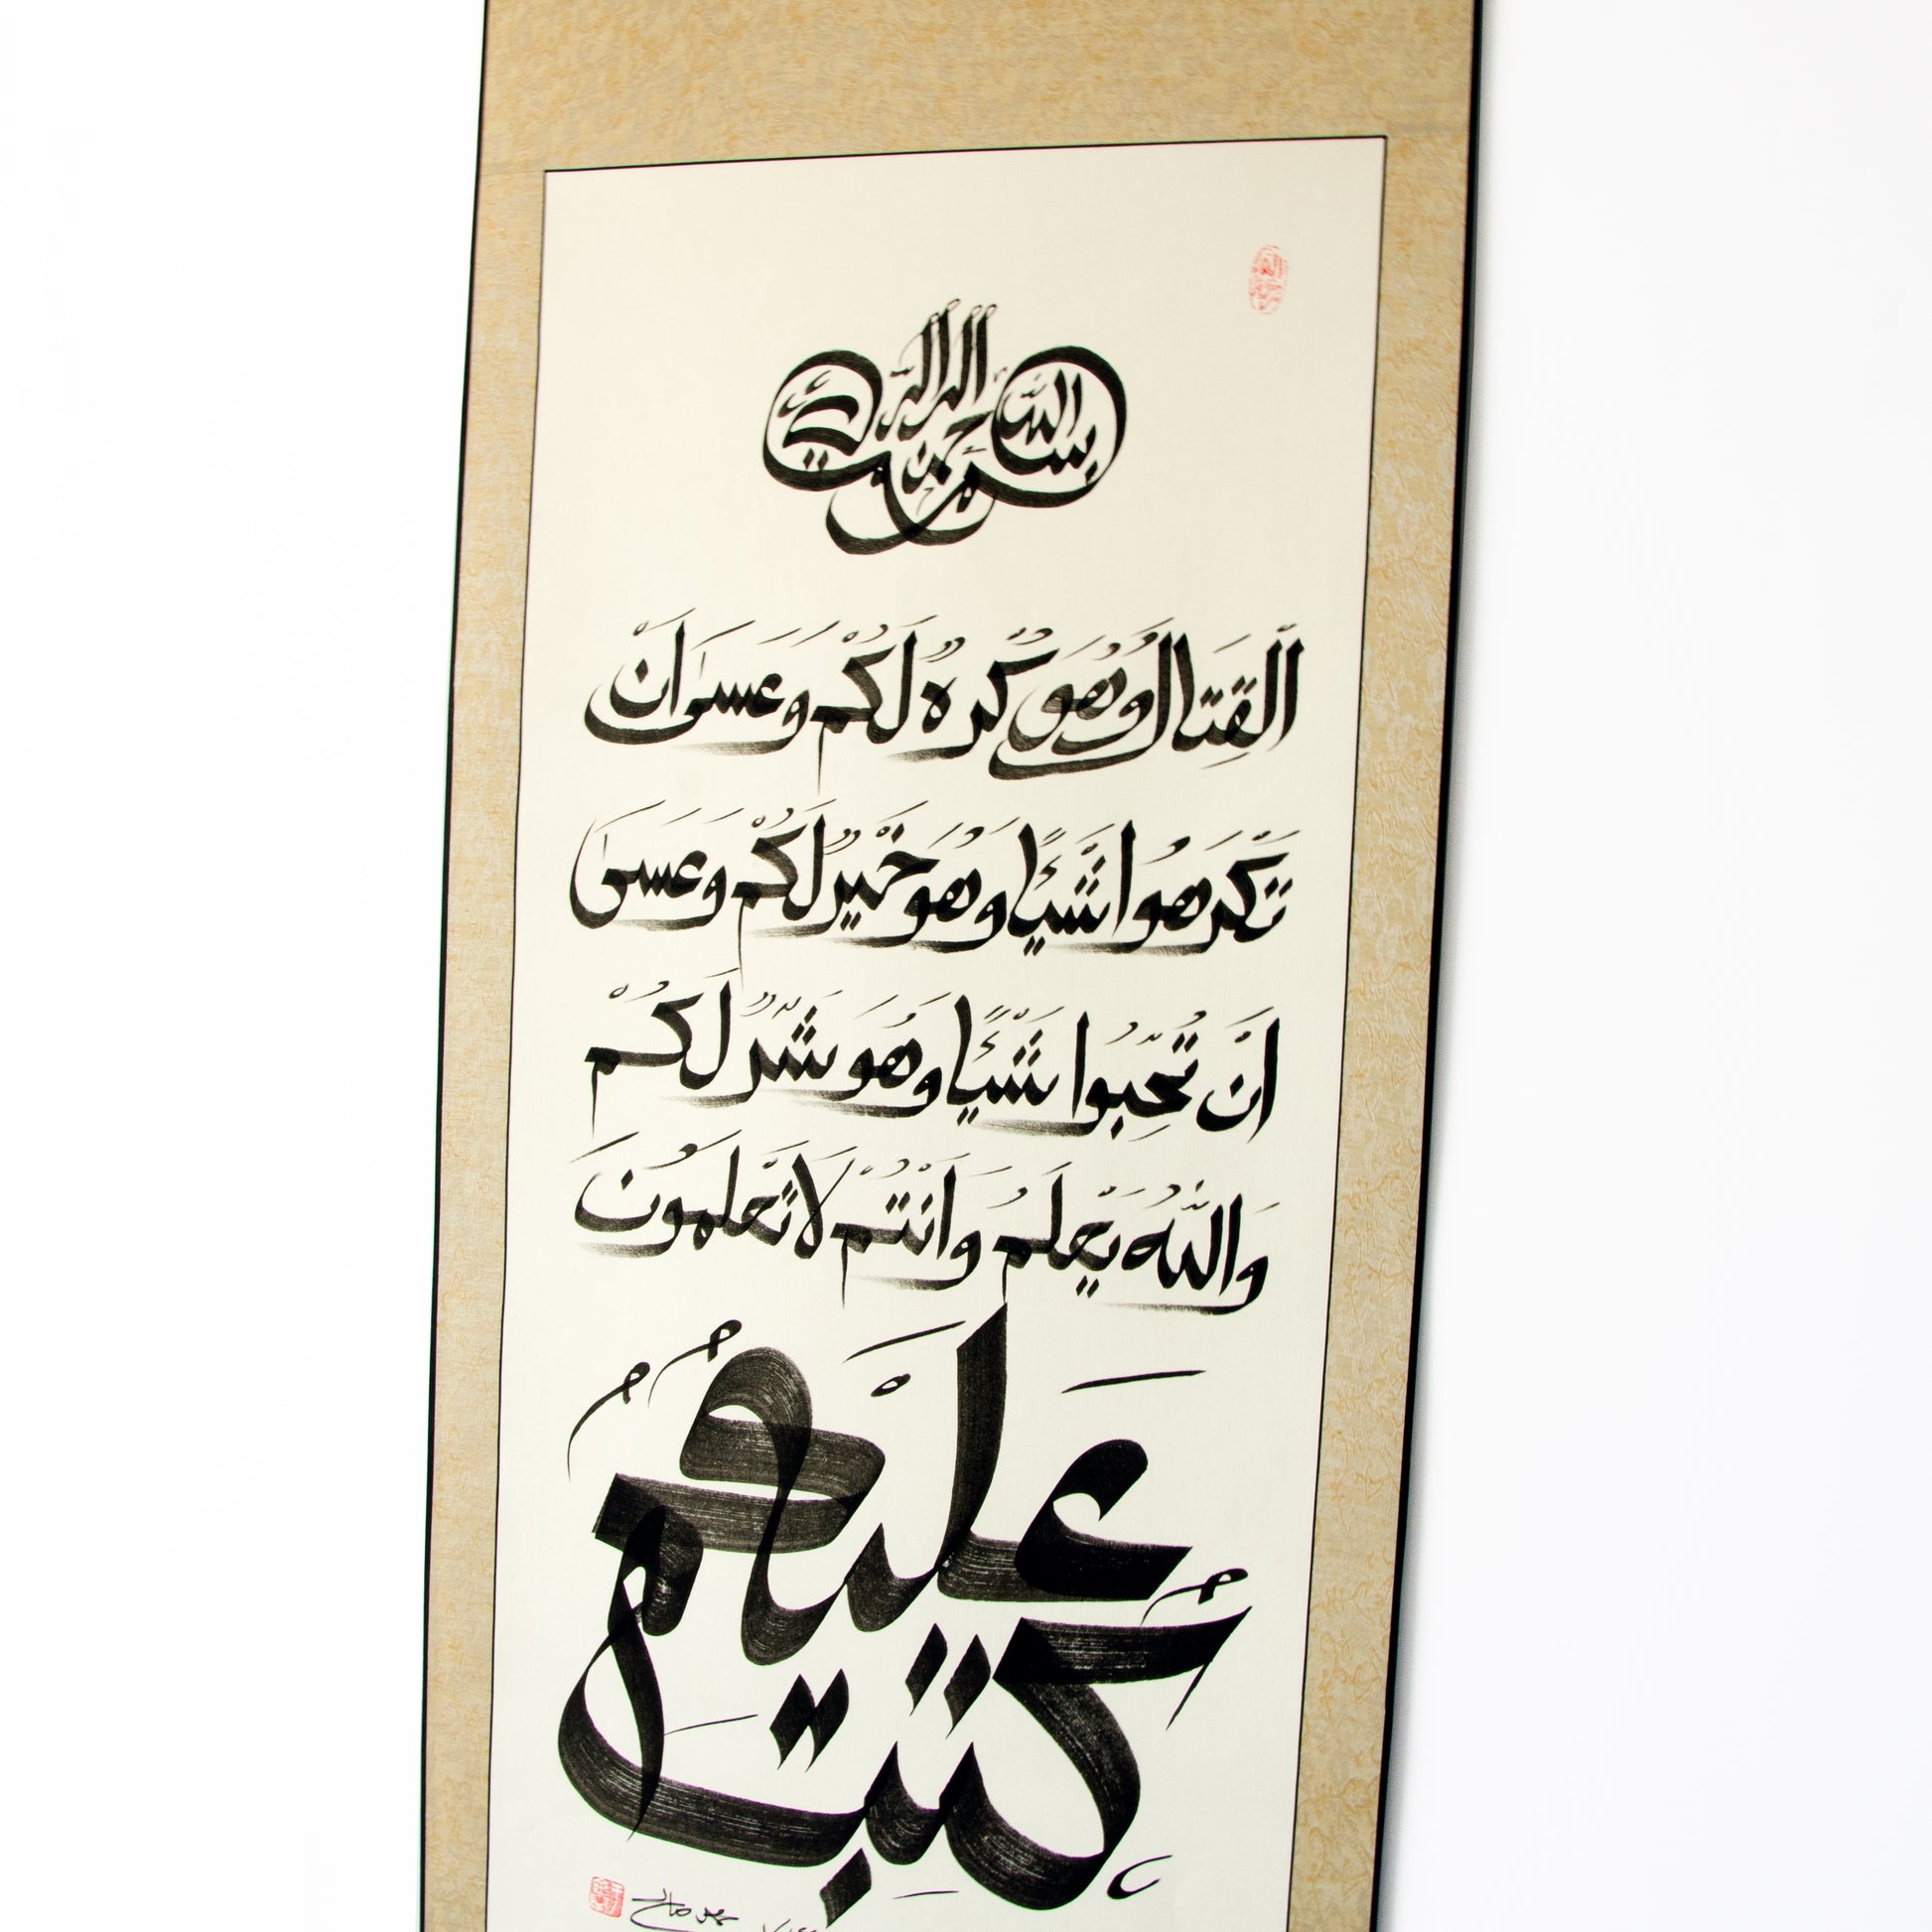 بسم الله الرحمن الرحيم
الْقِتَالُ وَهُوَ كُرْهٌ لَكُمْ وَعَسَىٰ اَنْ
تَكْرَهُوا شَيْئًا وَهُوَ خَيْرٌ لَكُمْ وَعَسَىٰ
اَنْ تُحِبُّوا شَيْئًا وَهُوَ شَرٌّ لَكُمْ
وَاللّٰهُ يَعْلَمُ وَاَنْتُمْ لَا تَعْلَمُونَ
عَلَيْكُمُ
كُتِبَ